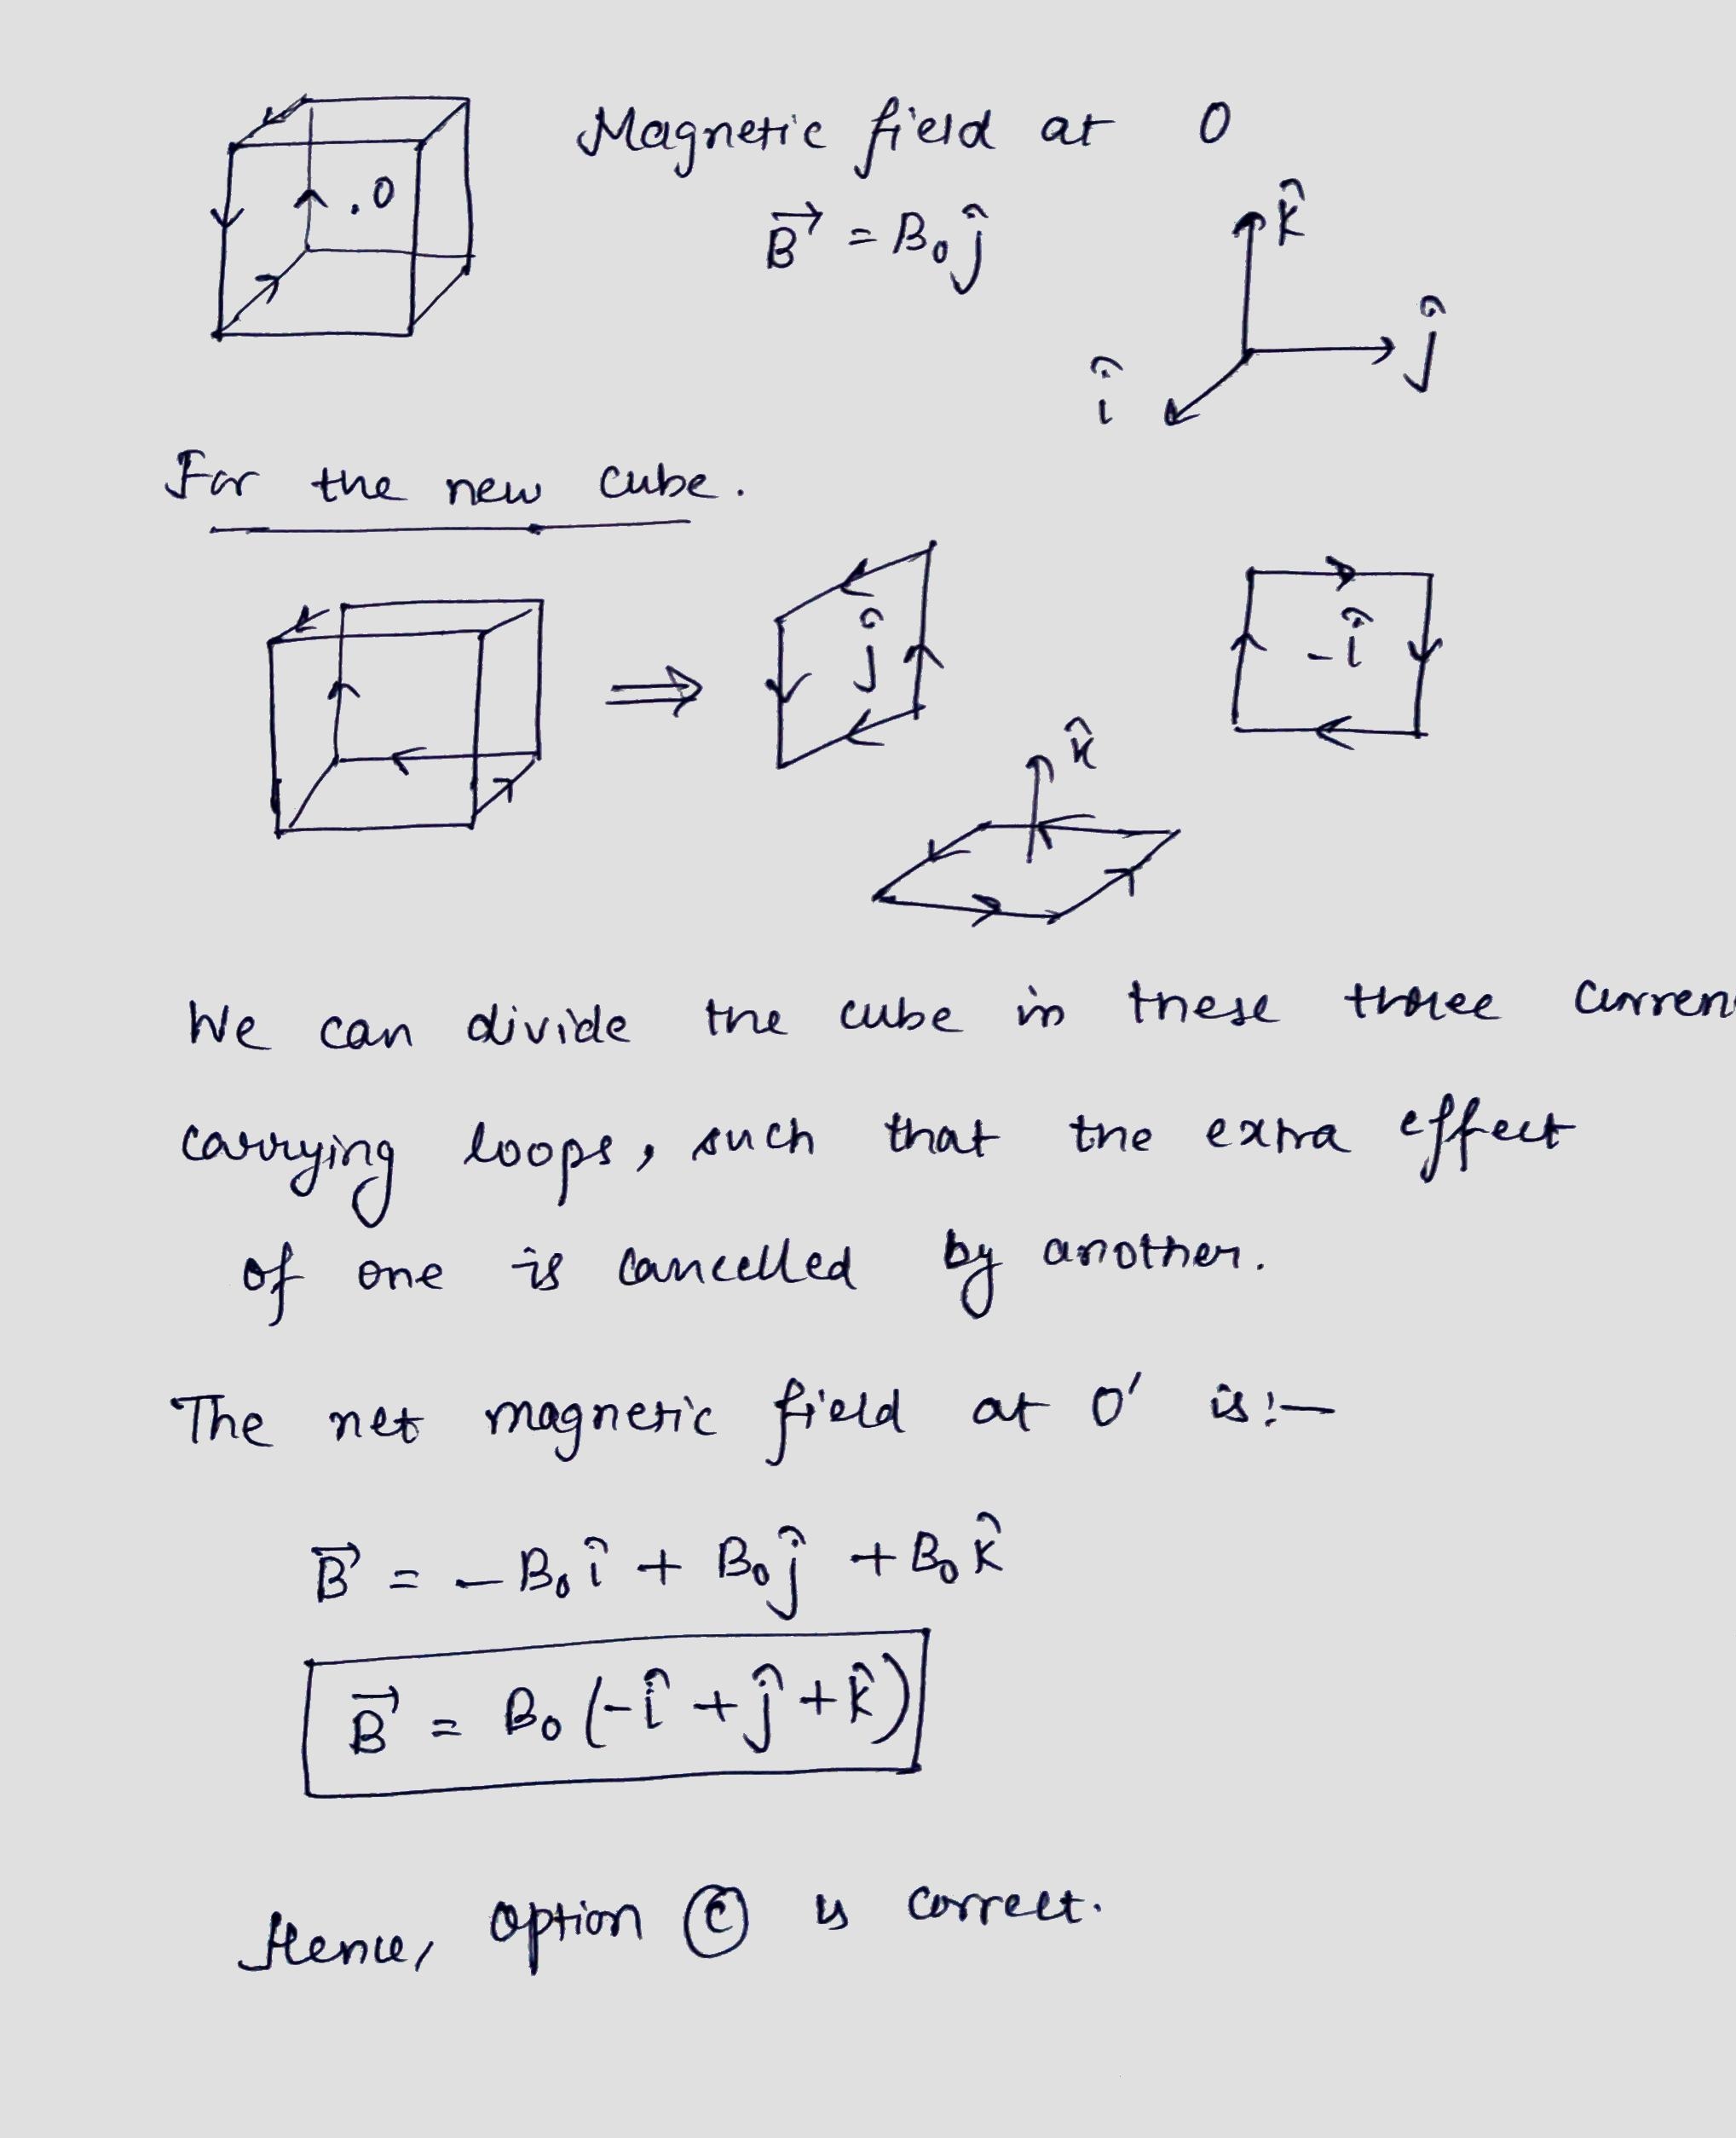 Magnetic field at O
.O
B⃗ = B₀ĵ
k̂
ĵ
î
For the new cube.
ĵ
-î
k̂
We can divide the cube in these three curren
carrying loops, such that the extra effect
of one is cancelled by another.
The net magnetic field at O' is:-
B⃗ = -B₀î + B₀ĵ + B₀k̂
B⃗ = B₀(-î + ĵ + k̂)
Hence, option Ⓒ is correct.